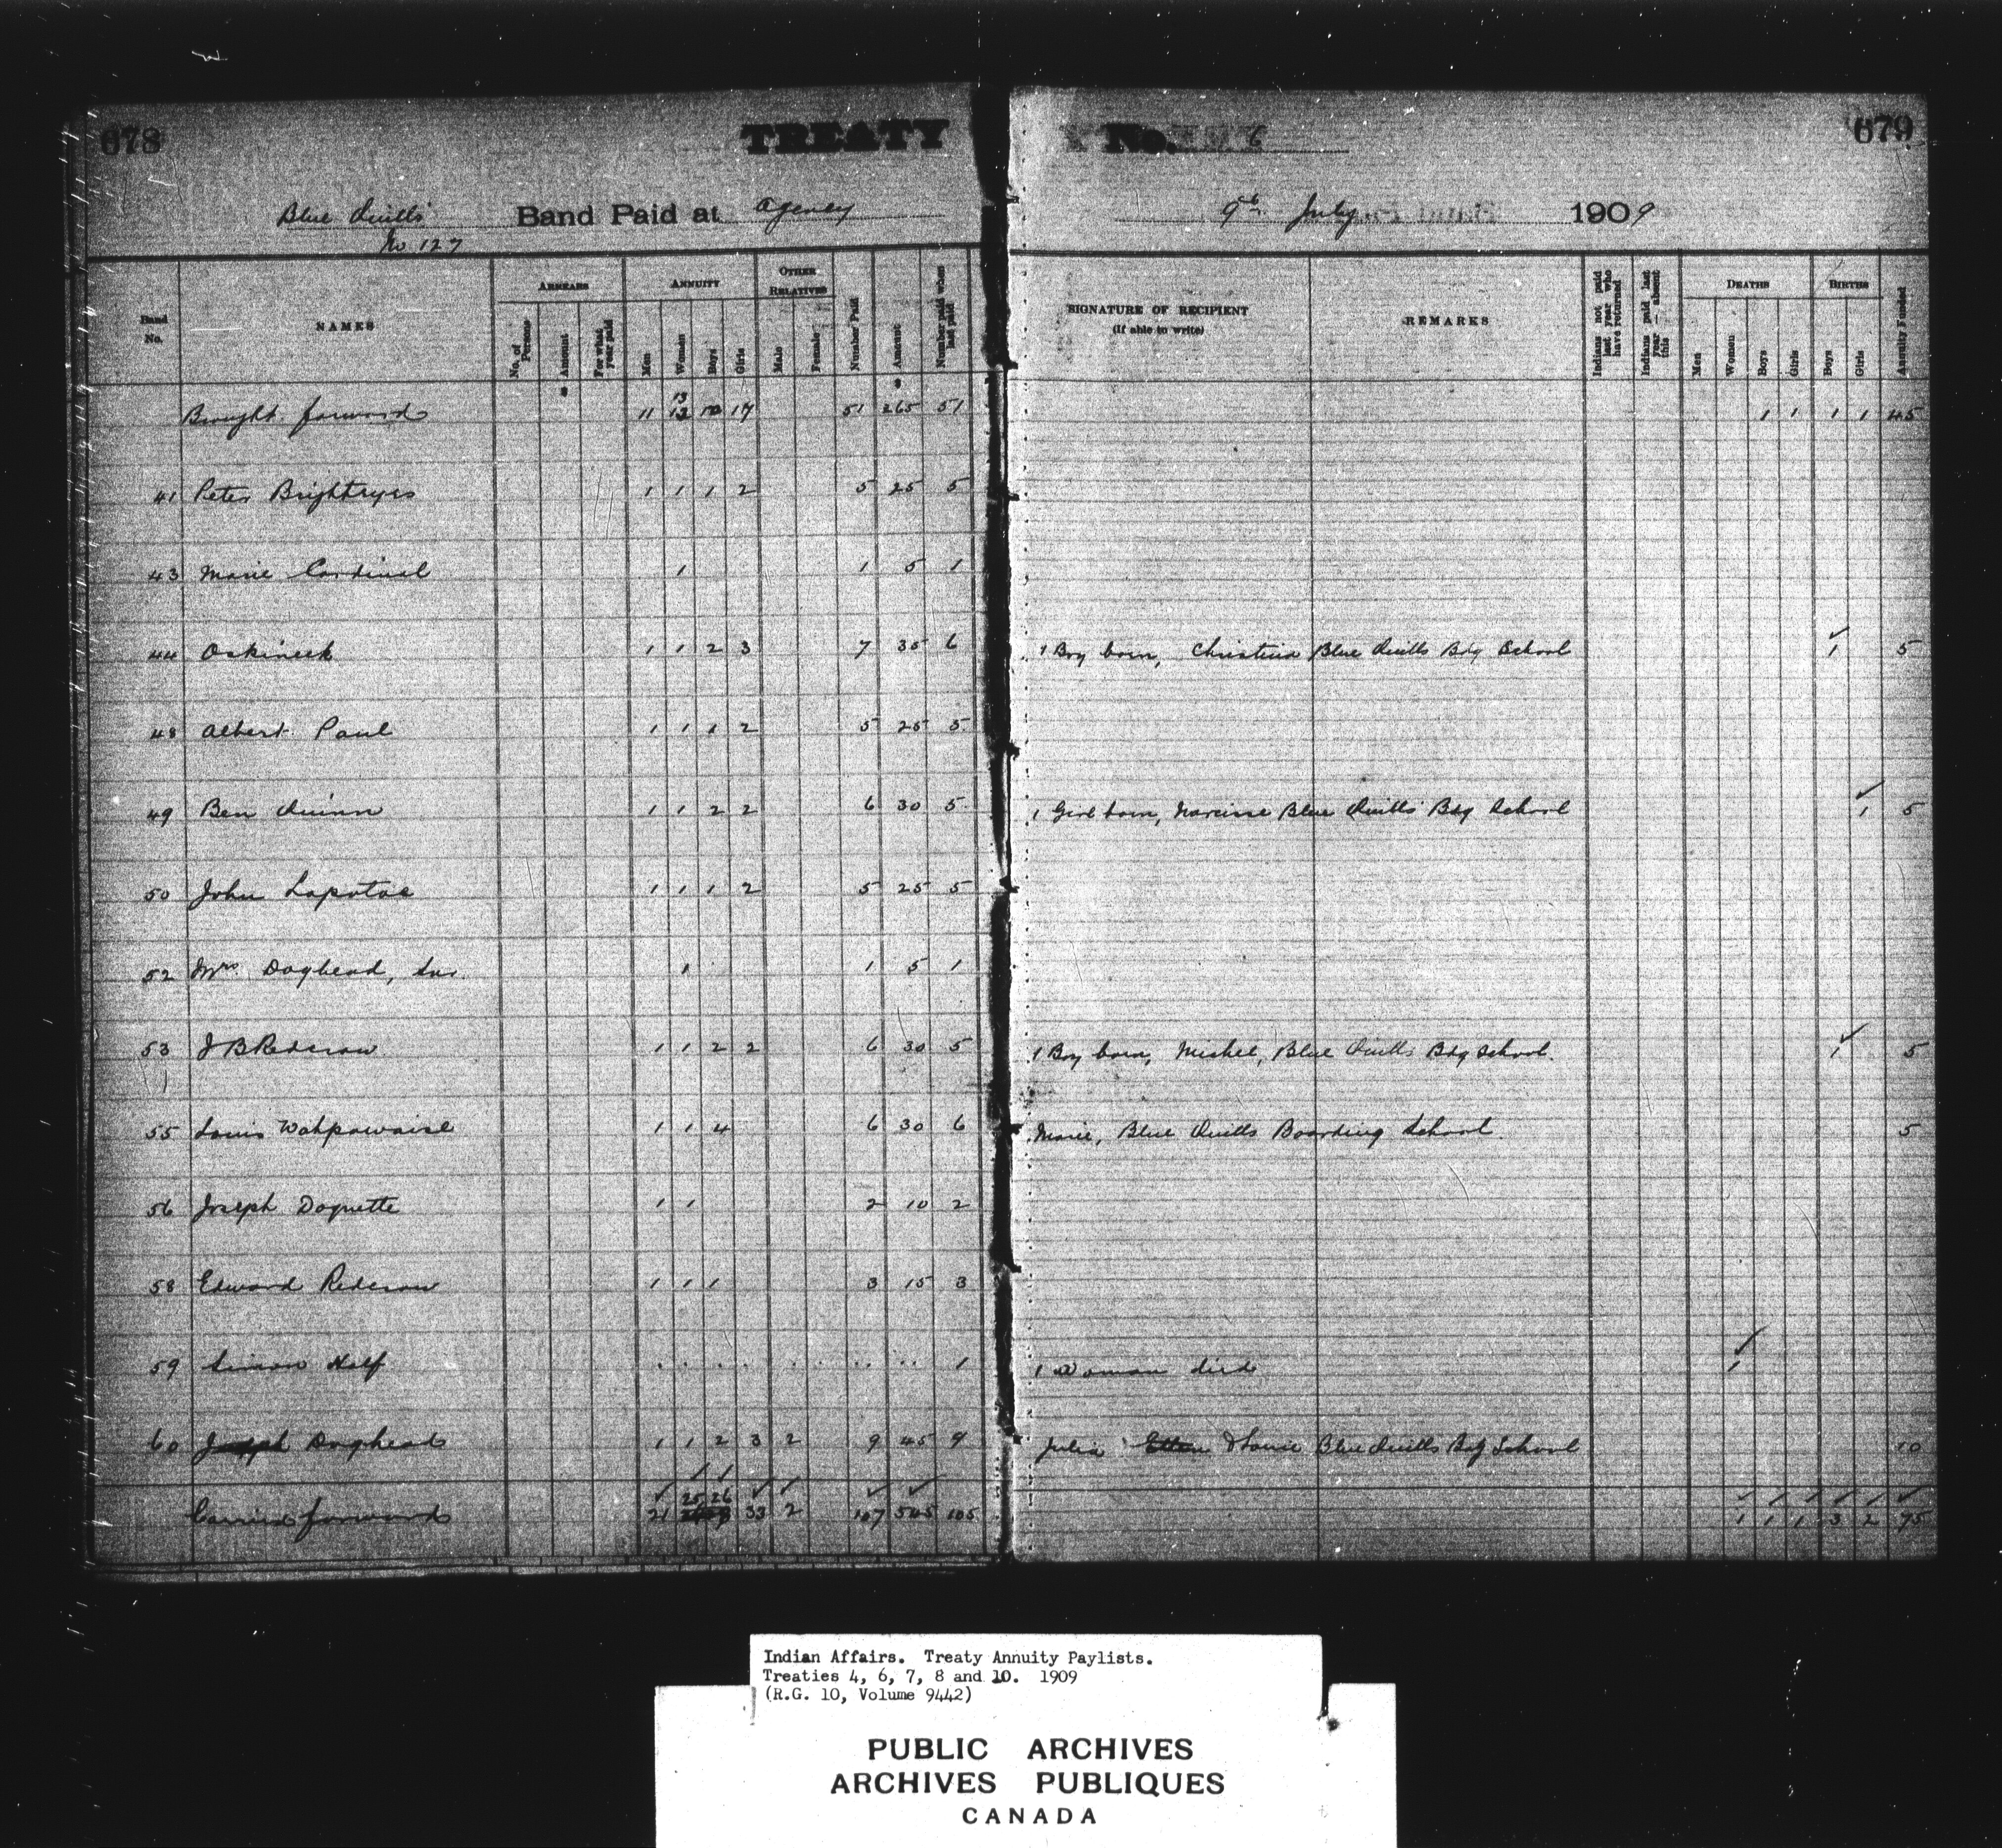 678
TREATY No. 6
679
Blue Quills' Band Paid at Agency 9th July 1909
No 127
Band No.
NAMES
ARREARS
No. of Persons
Amount
For what year paid
ANNUITY
Men
Women
Boys
Girls
OTHER RELATIVES
Male
Female
Number Paid
Amount
Number paid when last paid
SIGNATURE OF RECIPIENT
(If able to write)
REMARKS
Indians not paid last year who have returned
Indians paid last year — absent this
DEATHS
Men
Women
Boys
Girls
BIRTHS
Boys
Girls
Annuity Funded
Brought forward 11 13 17 51 265 51 1 1 1 1 45
41 Peter Brighteyes 1 1 1 2 5 25 5
43 Marie Cardinal 1 1 5 1
44 Oskineek 1 1 2 3 7 35 6 1 Boy born, Christina Blue Quills Bdg School 1 5
48 Albert Paul 1 1 1 2 5 25 5
49 Ben Quinn 1 1 2 2 6 30 5 1 Girl born, Narcisse Blue Quills' Bdg School 1 5
50 John Lapotac 1 1 1 2 5 25 5
52 Mrs Doghead, 1 1 5 1
53 J B Redcrow 1 1 2 2 6 30 5 1 Boy born, Michel, Blue Quills Bdg School. 1 5
55 Louis Wahpawaise 1 1 4 6 30 6 Marie, Blue Quills Boarding School. 5
56 Joseph Doquette 1 1 2 10 2
58 Edward Redcrow 1 1 1 3 15 3
59 Simon Half 1 1 Woman died 1
60 Joseph Doghead 1 1 2 3 2 9 45 9 Julia & Louie Blue Quills Bdg School 10
Carried forward 21 25 26 33 2 107 545 105 1 1 1 3 2 75
Indian Affairs. Treaty Annuity Paylists.
Treaties 4, 6, 7, 8 and 10. 1909
(R.G. 10, Volume 9442)
PUBLIC ARCHIVES
ARCHIVES PUBLIQUES
CANADA